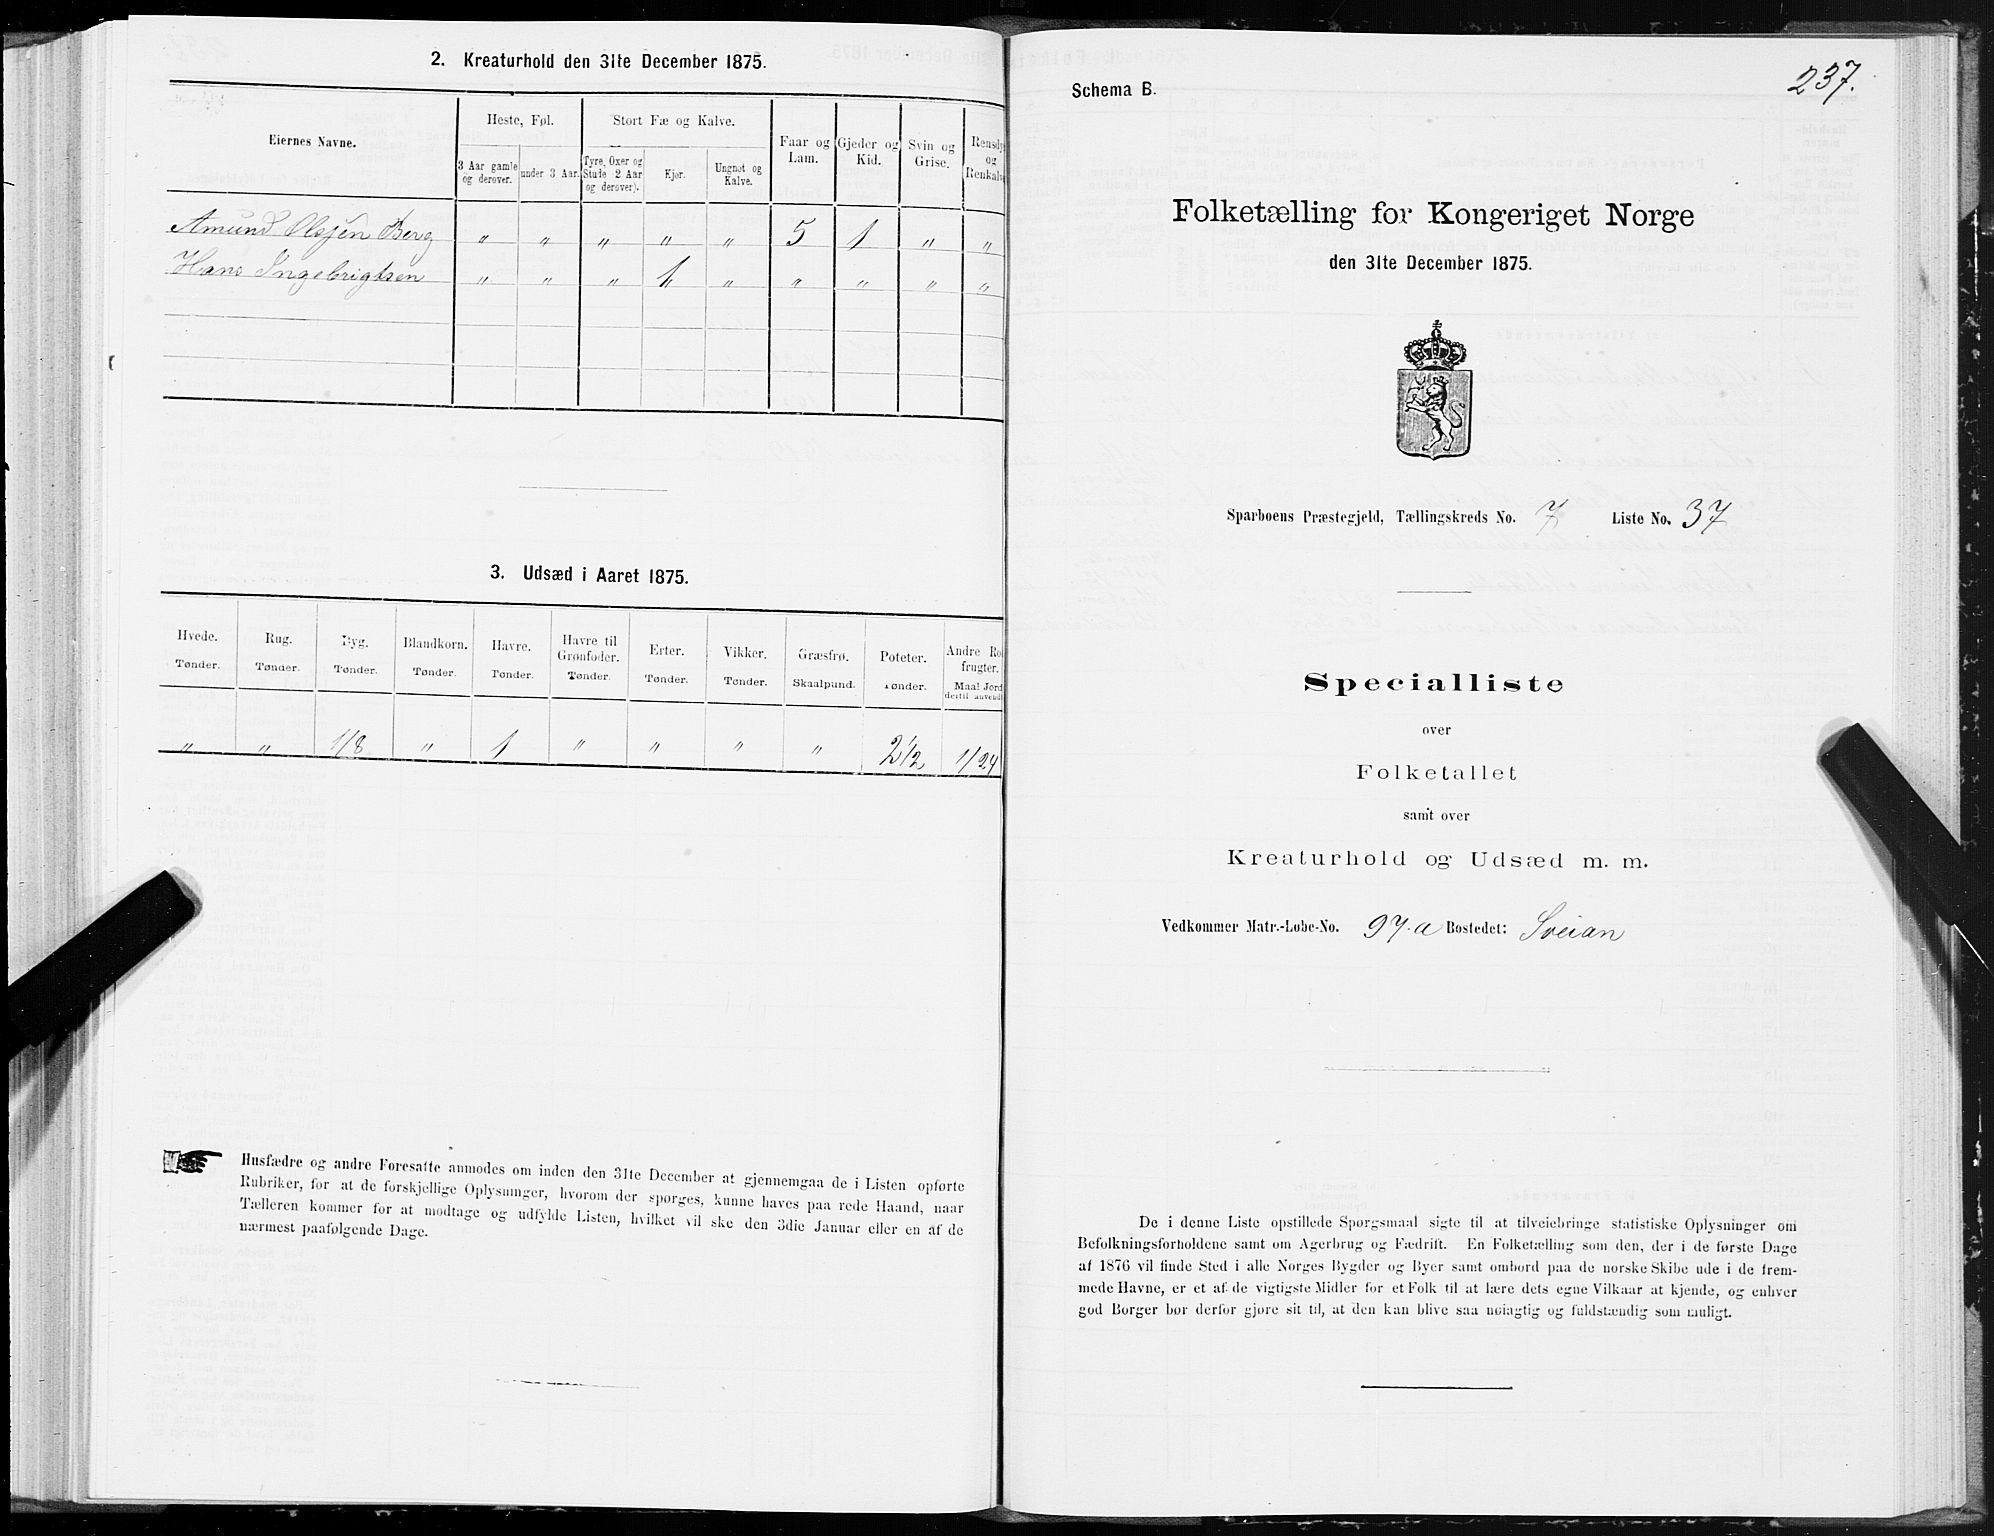 2. Kreaturhold den 31te December 1875.
Eiernes Navne.
Heste, Føl.
Stort Fæ og Kalve.
Faar og Lam.
Gjeder og Kid.
Svin og Grise.
Rensdy og Renkalv
3 Aar gamle og derover.
under 3 Aar.
Tyre, Oxer og Stude (2 Aar og derover).
Kjør.
Ungnøt og Kalve.
Amund Olsjen Berg " " " " " 5 1 " "
Hans Ingebrigtsen " " " 1 " " " " "
3. Udsæd i Aaret 1875.
Hvede. Rug. Byg. Blandkorn. Havre. Havre til Grønfoder. Erter. Vikker. Græsfrø. Poteter. Andre Ro frugter.
Tønder. Tønder. Tønder. Tønder. Tønder. Tønder. Tønder. Tønder. Skaalpund. Tønder. Maal Jord dertil anvendt
" " 1/8 " 1 " " " " 2 1/2 1/24
Husfædre og andre Foresatte anmodes om inden den 31te December at gjennemgaa de i Listen opførte
Rubriker, for at de forskjellige Oplysninger, hvorom der spørges, kunne haves paa rede Haand, naar
Tælleren kommer for at modtage og udfylde Listen, hvilket vil ske den 3die Januar eller en af de
nærmest paafølgende Dage.
237.
Schema B.
Folketælling for Kongeriget Norge
den 31te December 1875.
Sparboens Præstegjeld, Tællingskreds No. 7 Liste No. 37
Specialliste
over
Folketallet
samt over
Kreaturhold og Udsæd m. m.
Vedkommer Matr.-Løbe-No. 97.a Bostedet: Sveian
De i denne Liste opstillede Spørgsmaal sigte til at tilveiebringe statistiske Oplysninger om
Befolkningsforholdene samt om Agerbrug og Fædrift. En Folketælling som den, der i de første Dage
af 1876 vil finde Sted i alle Norges Bygder og Byer samt ombord paa de norske Skibe ude i de frem-
mede Havne, er et af de vigtigste Midler for et Folk til at lære dets egne Vilkaar at kjende, og enhver
god Borger bør derfor gjøre sit til, at den kan blive saa nøiagtig og fuldstændig som muligt.